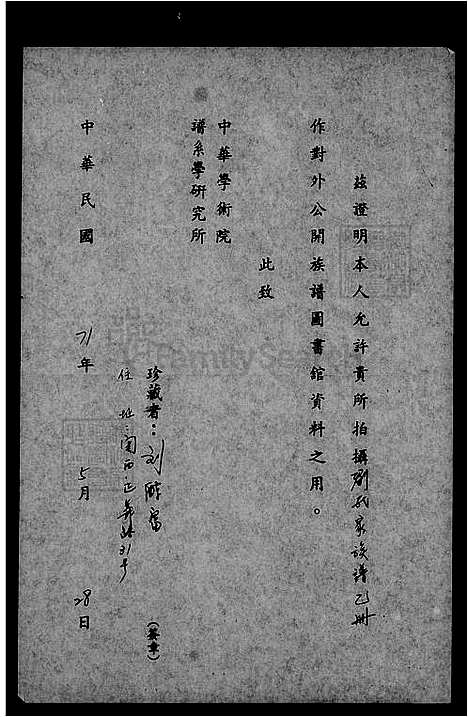 茲證明本人允許貴所拍攝劉氏家族譜乙冊
作對外公開族譜圖書館資料之用。
此致
中華學術院
譜系學研究所
珍藏者：刘 (簽章)
住址：正義路31号
中華民國71年5月28日
FamilySearch